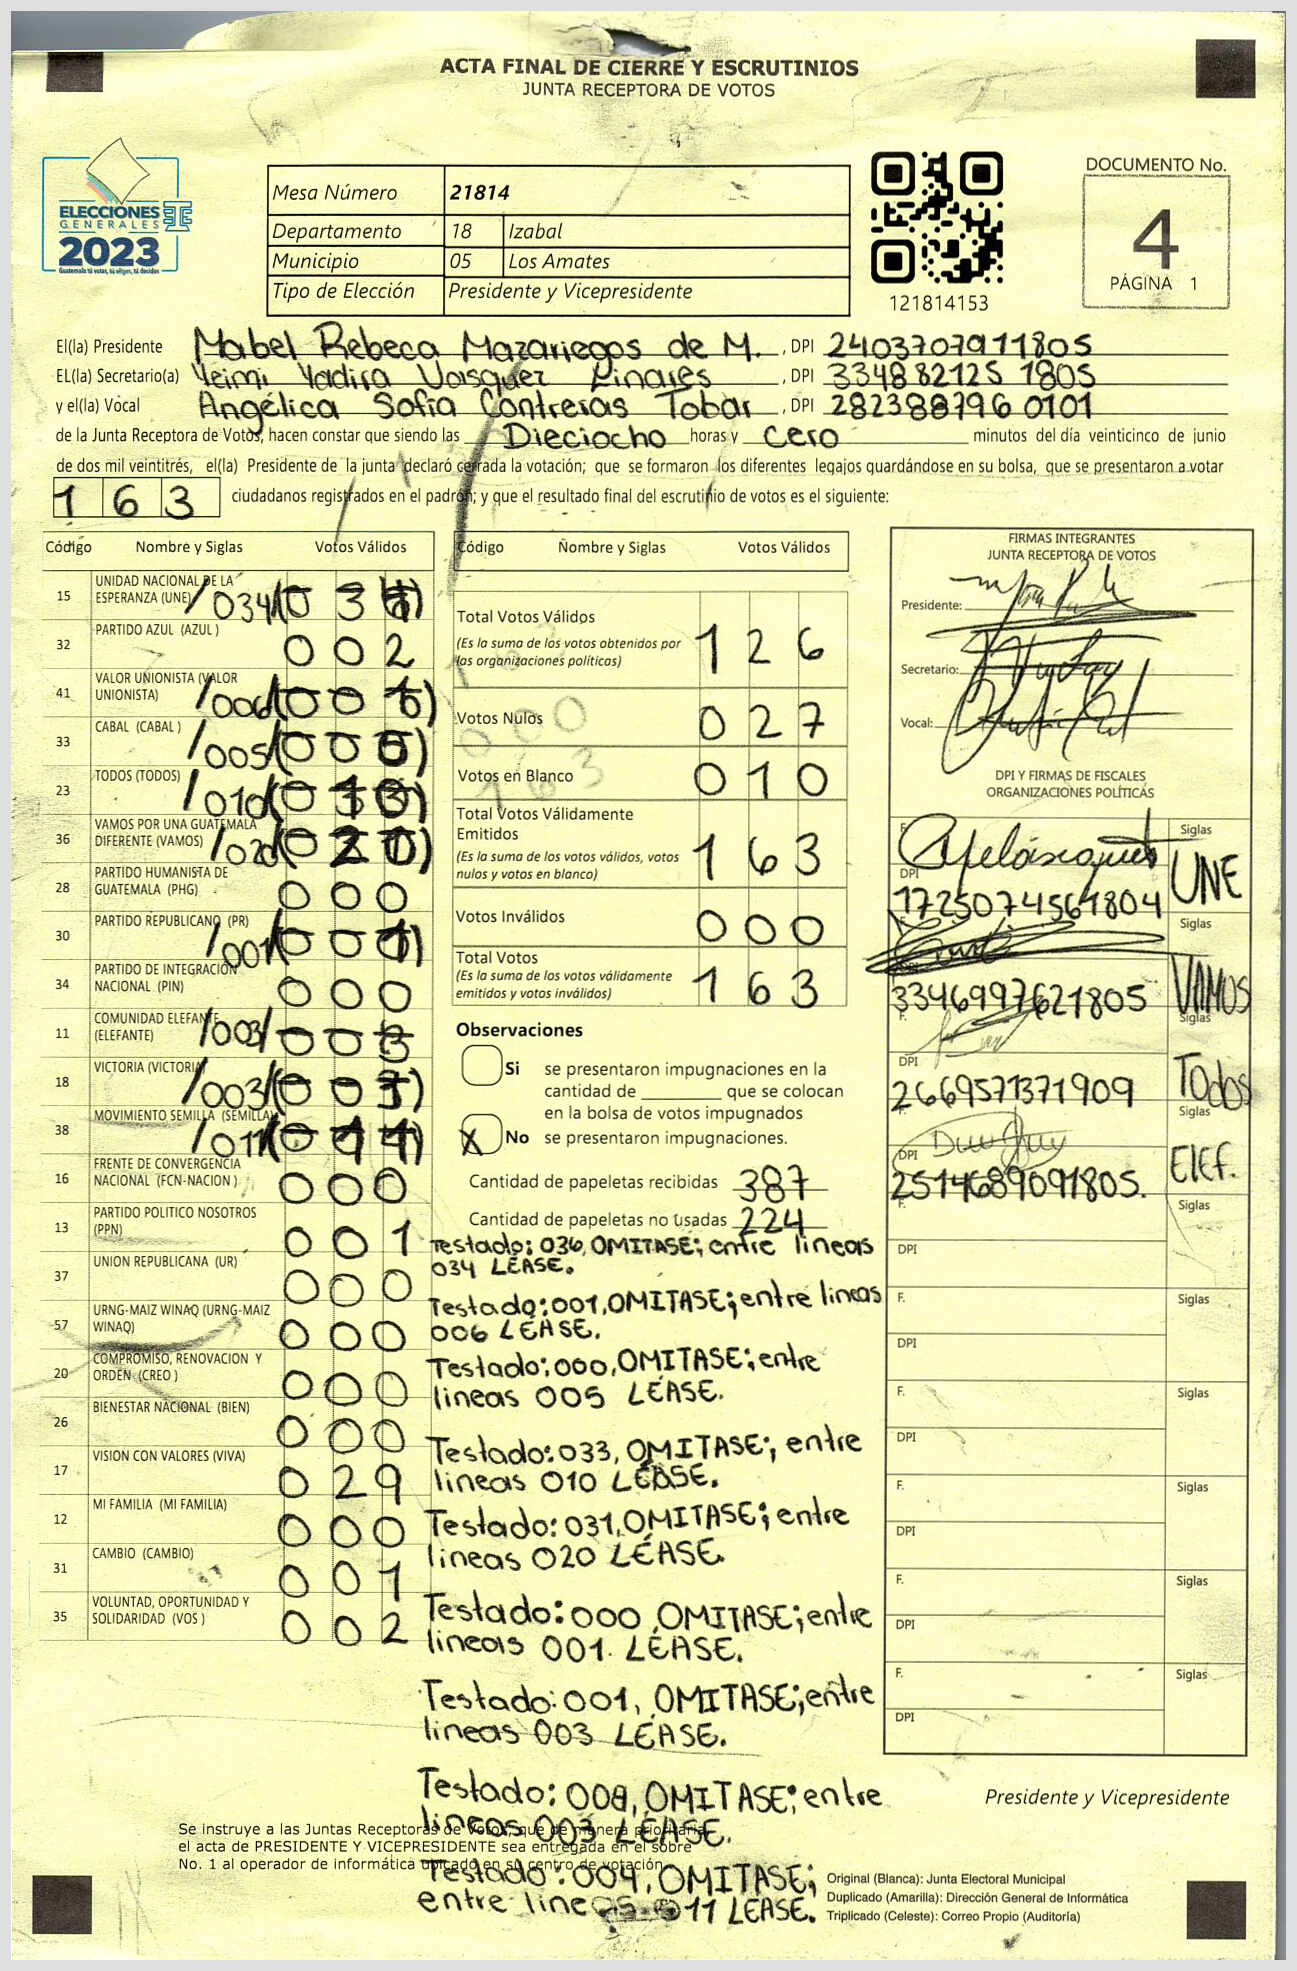 ACTA FINAL DE CIERRE Y ESCRUTINIOS
JUNTA RECEPTORA DE VOTOS
ELECCIONES
GENERALES
2023
Guatemala tú votas, tú eliges, tú decides
Mesa Número 21814
Departamento 18 Izabal
Municipio 05 Los Amates
Tipo de Elección Presidente y Vicepresidente
121814153
DOCUMENTO No.
4
PÁGINA 1
El(la) Presidente Mabel Rebeca Mazariegos de M. , DPI 2403707911805
EL(la) Secretario(a) Yeimi Yadira Vasquez Linares , DPI 334882125 1805
y el(la) Vocal Angélica Sofía Contreras Tobar , DPI 282388796 0101
de la Junta Receptora de Votos, hacen constar que siendo las Dieciocho horas y cero minutos del día veinticinco de junio
de dos mil veintitrés, el(la) Presidente de la junta declaró cerrada la votación; que se formaron los diferentes legajos guardándose en su bolsa, que se presentaron a votar
163 ciudadanos registrados en el padrón; y que el resultado final del escrutinio de votos es el siguiente:
Código Nombre y Siglas Votos Válidos
15 UNIDAD NACIONAL DE LA
ESPERANZA (UNE) /034/(0 3
32 PARTIDO AZUL (AZUL ) 0 0 2
41 VALOR UNIONISTA (VALOR
UNIONISTA) /006/(0 0
33 CABAL (CABAL ) /005/(0 0
23 TODOS (TODOS) /010/(0
36 VAMOS POR UNA GUATEMALA
DIFERENTE (VAMOS) /020/(0
28 PARTIDO HUMANISTA DE
GUATEMALA (PHG) 0 0 0
30 PARTIDO REPUBLICANO (PR)
/001/(0 0
34 PARTIDO DE INTEGRACIÓN
NACIONAL (PIN) 0 0 0
11 COMUNIDAD ELEFANTE
(ELEFANTE) /003/ 0 0
18 VICTORIA (VICTORIA)
/003/(0 0
38 MOVIMIENTO SEMILLA (SEMILLA)
/011/(0
16 FRENTE DE CONVERGENCIA
NACIONAL (FCN-NACION ) 0 0 0
13 PARTIDO POLITICO NOSOTROS
(PPN) 0 0 1
37 UNION REPUBLICANA (UR) 0 0 0
57 URNG-MAIZ WINAQ (URNG-MAIZ
WINAQ) 0 0 0
20 COMPROMISO, RENOVACION Y
ORDEN (CREO ) 0 0 0
26 BIENESTAR NACIONAL (BIEN) 0 0 0
17 VISION CON VALORES (VIVA) 0 2 9
12 MI FAMILIA (MI FAMILIA) 0 0 0
31 CAMBIO (CAMBIO) 0 0 1
35 VOLUNTAD, OPORTUNIDAD Y
SOLIDARIDAD (VOS ) 0 0 2
Código Nombre y Siglas Votos Válidos
Total Votos Válidos
(Es la suma de los votos obtenidos por
las organizaciones políticas) 1 2 6
Votos Nulos 0 2 7
Votos en Blanco 0 1 0
Total Votos Válidamente
Emitidos
(Es la suma de los votos válidos, votos
nulos y votos en blanco) 1 6 3
Votos Inválidos 0 0 0
Total Votos
(Es la suma de los votos válidamente
emitidos y votos inválidos) 1 6 3
Observaciones
Si se presentaron impugnaciones en la
cantidad de ________ que se colocan
en la bolsa de votos impugnados
X No se presentaron impugnaciones.
Cantidad de papeletas recibidas 387
Cantidad de papeletas no usadas 224
Testado: 036, OMITASE; entre lineas
034 LÉASE.
Testado: 001, OMITASE; entre lineas
006 LÉASE.
Testado: 000, OMITASE; entre
lineas 005 LÉASE.
Testado: 033, OMITASE; entre
lineas 010 LÉASE.
Testado: 031, OMITASE; entre
lineas 020 LÉASE.
Testado: 000, OMITASE; entre
lineas 001. LÉASE.
Testado: 001, OMITASE; entre
lineas 003 LÉASE.
Testado: 008, OMITASE; entre
lineas 003 LÉASE.
Testado: 004, OMITASE;
entre lineas 011 LEASE.
FIRMAS INTEGRANTES
JUNTA RECEPTORA DE VOTOS
Presidente:
Secretario:
Vocal:
DPI Y FIRMAS DE FISCALES
ORGANIZACIONES POLÍTICAS
F. Siglas
UNE
DPI
1725074561804
Siglas
VAMOS
3346997621805
F. Siglas
Todos
DPI
2669571371909
F. Siglas
Elef.
DPI
2514689091805.
F. Siglas
DPI
F. Siglas
DPI
F. Siglas
DPI
F. Siglas
DPI
F. Siglas
DPI
F. Siglas
DPI
Presidente y Vicepresidente
Se instruye a las Juntas Receptoras de Votos, que de manera prioritaria,
el acta de PRESIDENTE Y VICEPRESIDENTE sea entregada en el sobre
No. 1 al operador de informática ubicado en su centro de votación.
Original (Blanca): Junta Electoral Municipal
Duplicado (Amarilla): Dirección General de Informática
Triplicado (Celeste): Correo Propio (Auditoría)